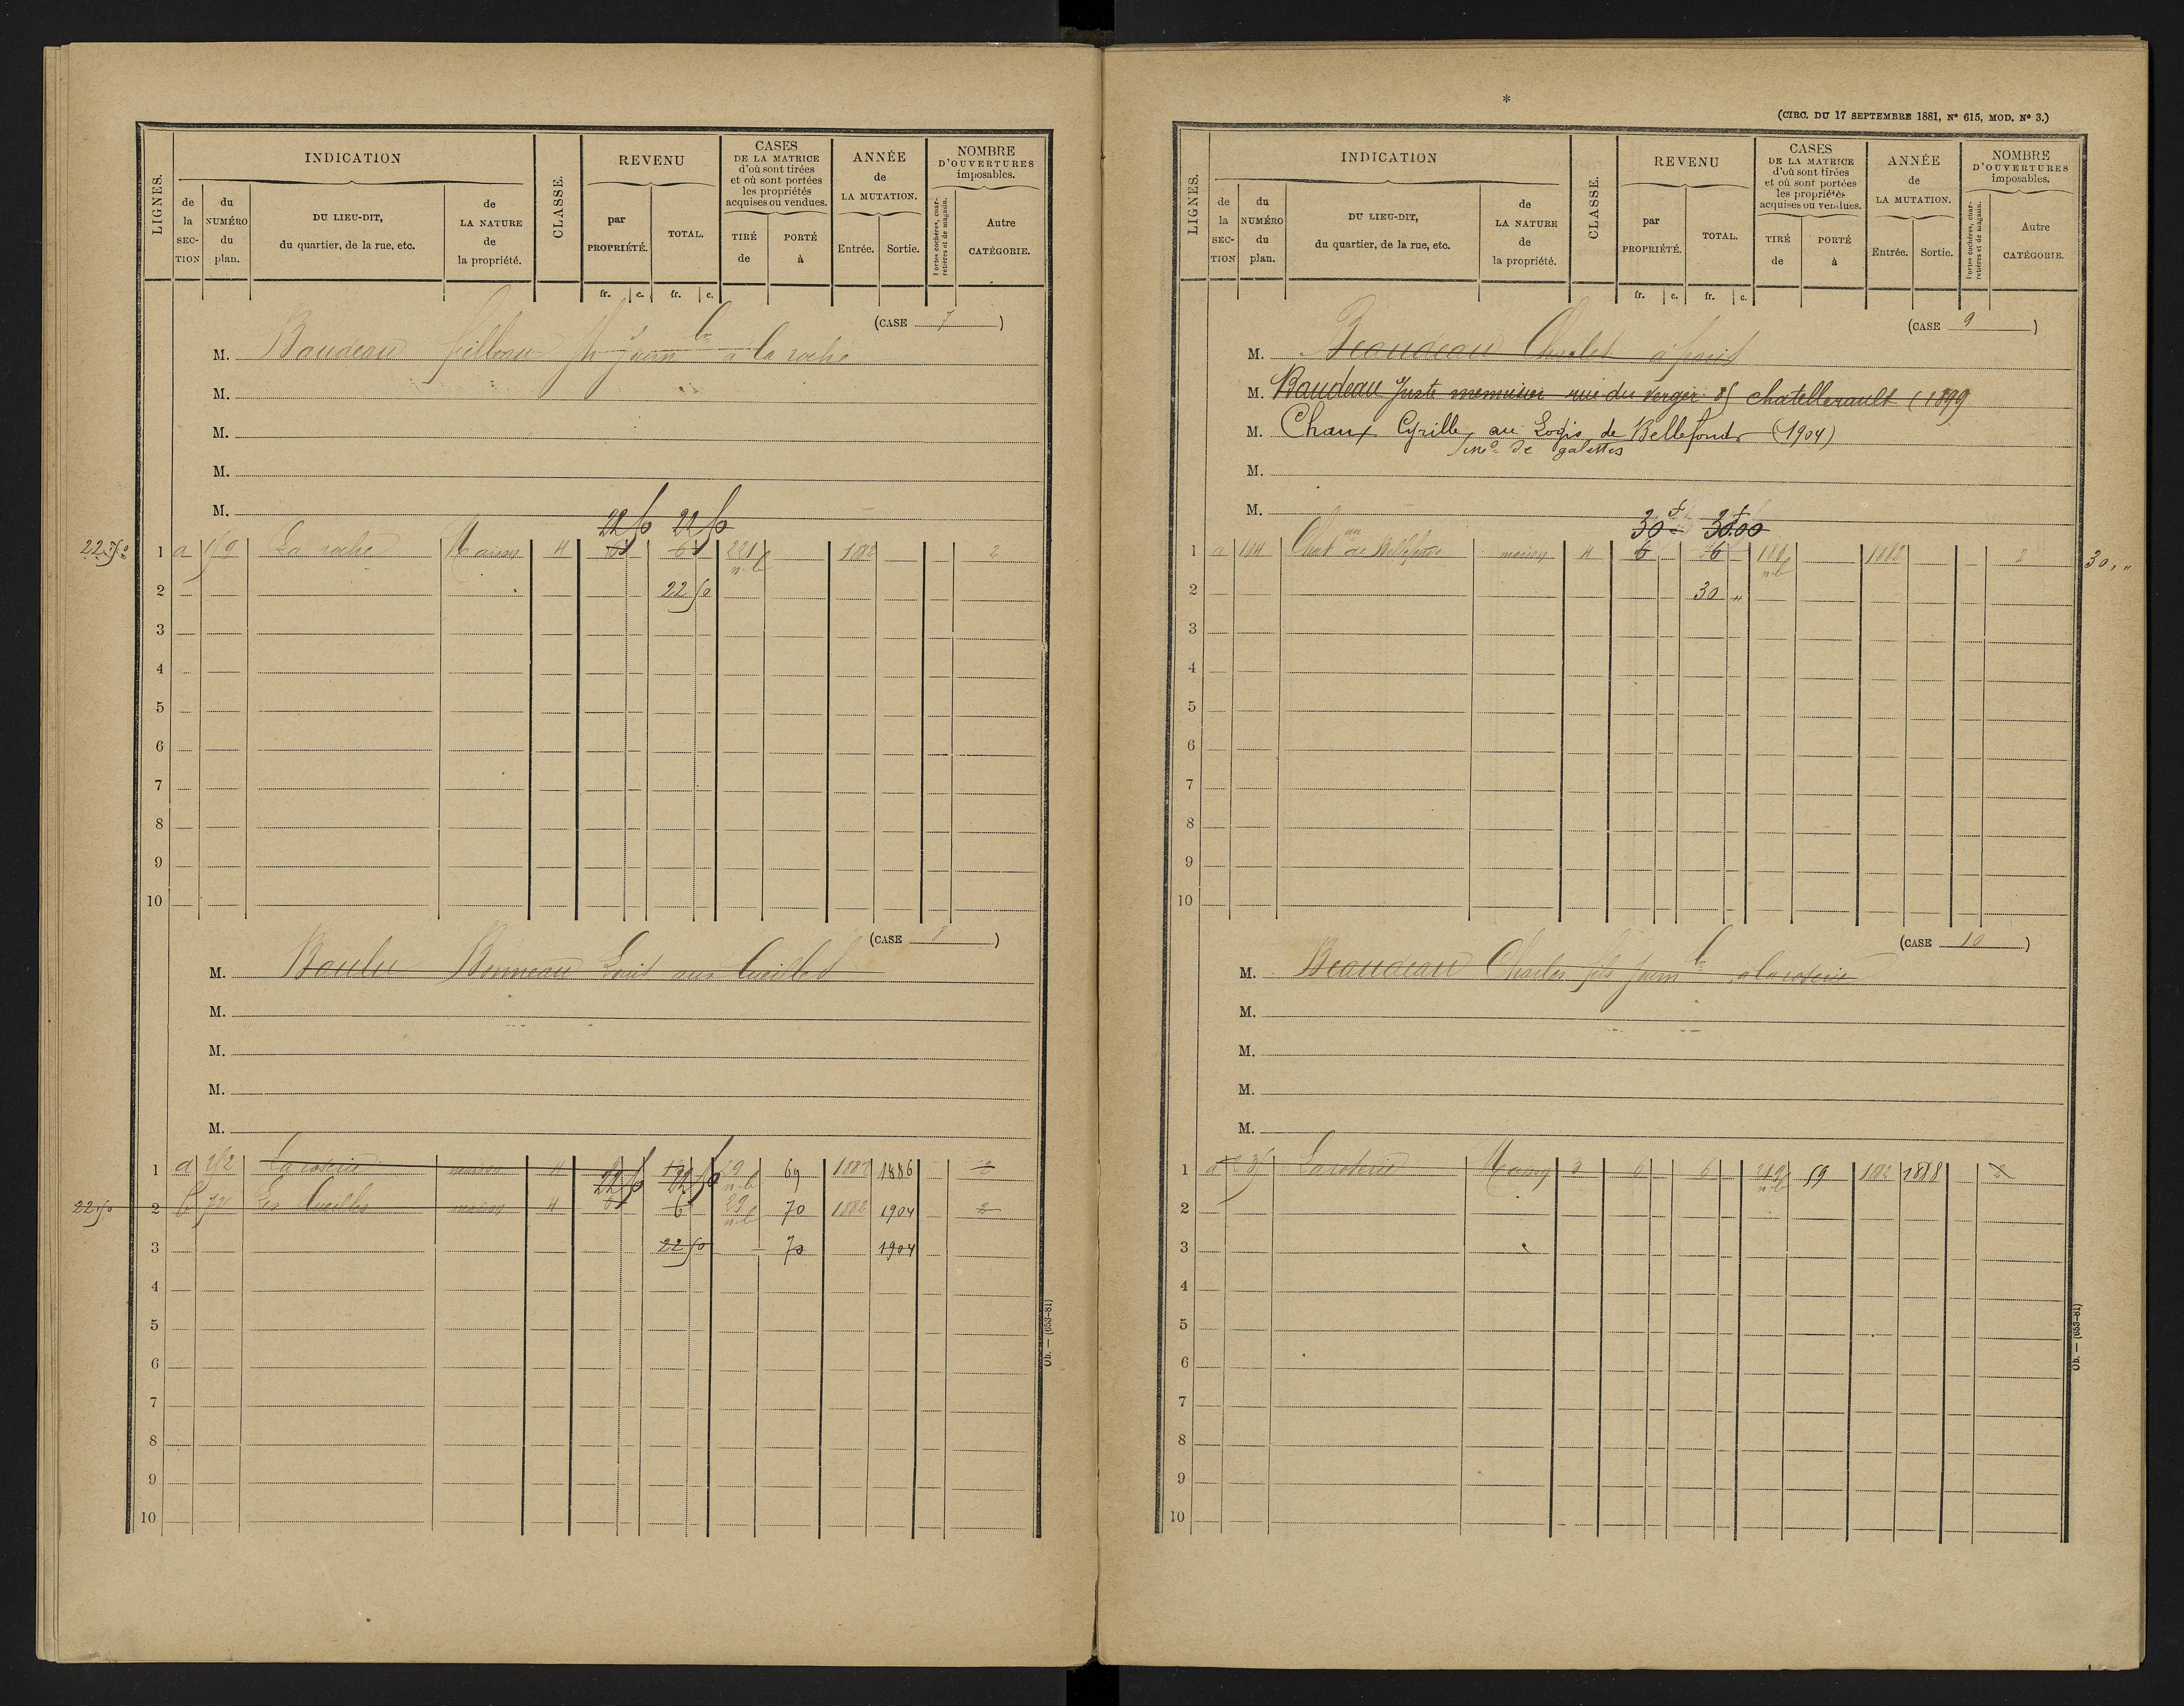 LIGNES.
INDICATION
de la SECTION
du NUMÉRO du plan.
DU LIEU-DIT, du quartier, de la rue, etc.
de LA NATURE de la propriété.
CLASSE.
REVENU
par PROPRIÉTÉ.
TOTAL.
fr. c. fr. c.
CASES DE LA MATRICE d'où sont tirées et où sont portées les propriétés acquises ou vendues.
TIRÉ de
PORTÉ à
ANNÉE de LA MUTATION.
Entrée. Sortie.
NOMBRE D'OUVERTURES imposables.
Portes cochères, charretières et de magasin.
Autre CATÉGORIE.
(CASE 7)
M. Baudeau à la roche
M.
M.
M.
M.
22 50 22 50
22.50
1 a La roche Maison 4 6 6 221 1882 2
2 22 50
3
4
5
6
7
8
9
10
(CASE 8)
M. Boulu Bonneau Louis aux Cueilles
M.
M.
M.
M.
1 a La roterie maison 4 69 1882 1886 2
22 50 22 50
22.50
2 Les Cueilles maison 4 6 6 29 70 1882 1904 2
3 22 50 70 1904
4
5
6
7
8
9
10
Ob. — (653-81)
*
(CIRC. DU 17 SEPTEMBRE 1881, N° 615, MOD. N° 3.)
LIGNES.
INDICATION
de la SECTION
du NUMÉRO du plan.
DU LIEU-DIT, du quartier, de la rue, etc.
de LA NATURE de la propriété.
CLASSE.
REVENU
par PROPRIÉTÉ.
TOTAL.
fr. c. fr. c.
CASES DE LA MATRICE d'où sont tirées et où sont portées les propriétés acquises ou vendues.
TIRÉ de
PORTÉ à
ANNÉE de LA MUTATION.
Entrée. Sortie.
NOMBRE D'OUVERTURES imposables.
Portes cochères, charretières et de magasin.
Autre CATÉGORIE.
(CASE 9)
M. Beaudeau à
M. Baudeau Juste menuisier rue du Verger 85 chatellerault (1899
M. Chaux Cyrille, au Logis de Bellefonds (1904)
de galettes
M.
M.
30 30.00
1 a 144 de Bellefonds maison 4 6 6 1882 2
30 „
2 30 „
3
4
5
6
7
8
9
10
(CASE 10)
M. Beaudeau Charles fils à la roterie
M.
M.
M.
M.
1 a La roterie Maison 3 6 6 219 59 1882 1888 2
2
3
4
5
6
7
8
9
10
Ob. — (653-81)